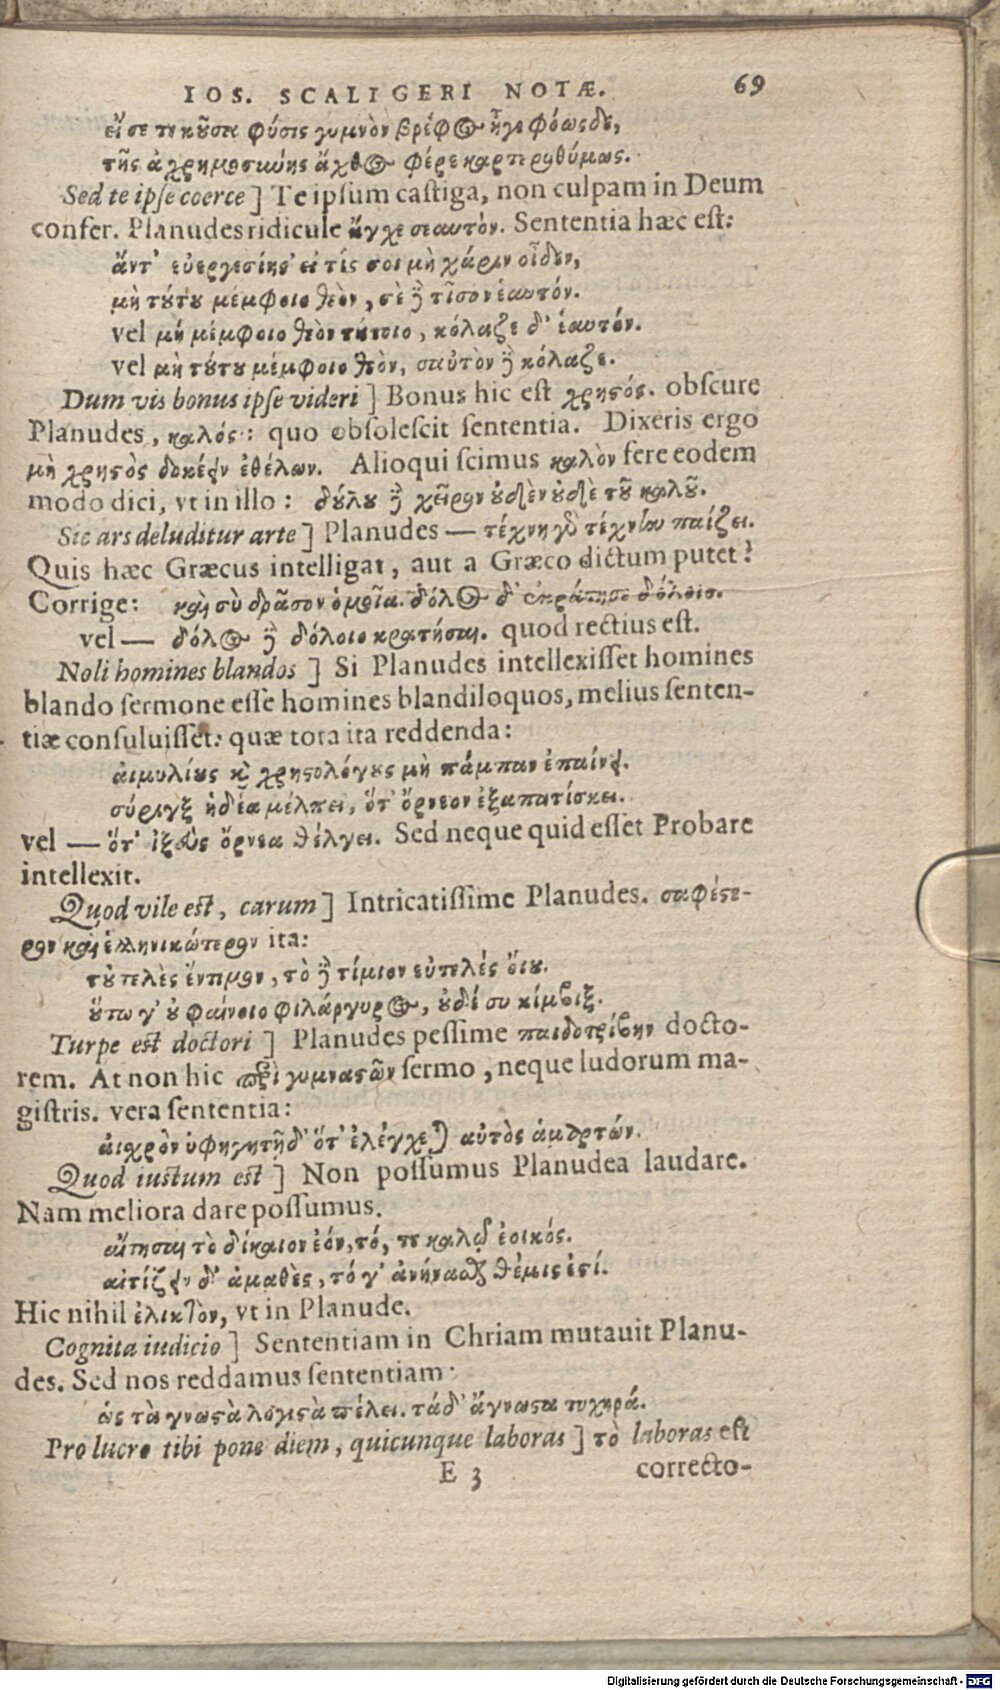 IOS. SCALIGERI NOTÆ. 69
εἴ σε τεκοῦσα φύσις γυμνὸν βρέφος ἦγε φόωσδε,
τῆς ἀχρημοσύνης ἄχθος φέρε καρτεροθύμως.
Sed te ipse coerce] Te ipsum castiga, non culpam in Deum
confer. Planudes ridicule ἄγχε σεαυτόν. Sententia hæc est:
ἄντ' εὐεργεσίης εἰ τίς σοι μὴ χάριν οἶδεν,
μὴ τούτου μέμφοιο θεὸν, σὲ δὲ τῖσον ἑαυτόν.
vel μὴ μέμφοιο θεὸν τούτοιο, κόλαζε δ' ἑαυτόν.
vel μὴ τούτου μέμφοιο θεὸν, σαὐτὸν δὲ κόλαζε.
Dum vis bonus ipse videri] Bonus hic est χρηστός. obscure
Planudes, καλός: quo obsolescit sententia. Dixeris ergo
μὴ χρηστὸς δοκέειν ἐθέλων. Alioqui scimus καλὸν fere eodem
modo dici, vt in illo: δούλου δὲ χεῖρον οὐδὲν οὐδὲ τοῦ καλοῦ.
Sic ars deluditur arte] Planudes — τέχνη γὰρ τέχνην παίζει.
Quis hæc Græcus intelligat, aut a Græco dictum putet?
Corrige: καὶ σὺ δρᾶσον ὁμοῖα. δόλος δ' ἐκράτησε δόλοισ.
vel — δόλος δὲ δόλοιο κρατήσαι. quod rectius est.
Noli homines blandos] Si Planudes intellexisset homines
blando sermone esse homines blandiloquos, melius senten-
tiæ consuluisset: quæ tota ita reddenda:
αἱμυλίους καὶ χρηστολόγους μὴ πάμπαν ἐπαίνει.
σύριγξ ἡδέα μέλπει, ὅτ' ὄρνεον ἐξαπατίσκει.
vel — ὅτ' ἰξεὺς ὄρνεα θέλγει. Sed neque quid esset Probare
intellexit.
Quod vile est, carum] Intricatissime Planudes. σαφέστε-
ρον καὶ ἑλληνικώτερον ita:
τοὐτελὲς ἔντιμον, τὸ δὲ τίμιον εὐτελές οἴου.
οὕτω γ' οὐ φαίνοιο φιλάργυρος, οὐδέ συ κίμβιξ.
Turpe est doctori] Planudes pessime παιδοτρίβην docto-
rem. At non hic περὶ γυμναστῶν sermo, neque ludorum ma-
gistris. vera sententia:
αἰσχρὸν ὑφηγητῆδ' ὅτ' ἐλέγχεται αὐτὸς ἁμαρτών.
Quod iustum est] Non possumus Planudea laudare.
Nam meliora dare possumus.
αἴτησαι τὸ δίκαιον ἐόν, τό, τε καλῶς ἐοικός.
αἰτίζειν δ' ἀμαθὲς, τό γ' ἀνήνασθαι θέμις ἐστί.
Hic nihil ἑλικτὸν, vt in Planude.
Cognita iudicio] Sententiam in Chriam mutauit Planu-
des. Sed nos reddamus sententiam:
ὡς τὰ γνωστὰ λογιστὰ πέλει. τάδ' ἄγνωστα τυχηρά.
Pro lucro tibi pone diem, quicunque laboras] τὸ laboras est
E 3 correcto-
Digitalisierung gefördert durch die Deutsche Forschungsgemeinschaft - DFG